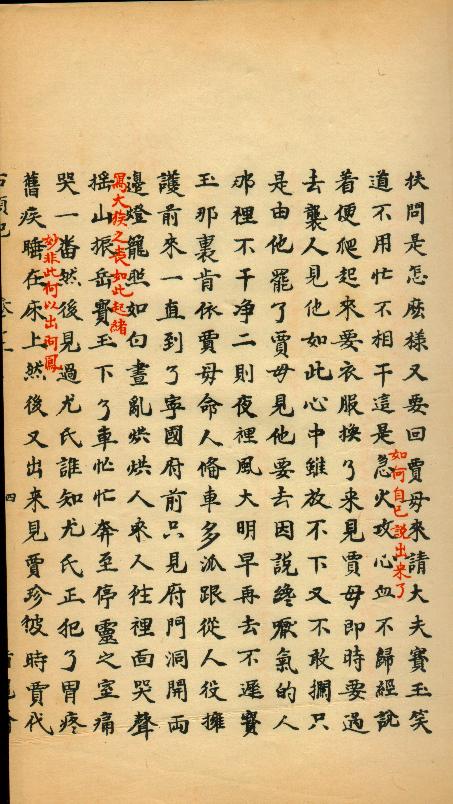 扶問是怎庅樣又要回賈母來請大夫寳玉笑
道不用忙不相干這是急火攻心血不歸經説
如何自己説出來了
着便爬起來要衣服換了來見賈母即時要過
去襲人見他如此心中雖放不下又不敢攔只
是由他罷了賈母見他要去因説終嚥氣的人
那裡不干净二則夜裡風大明早再去不遲寳
玉那裏肯依賈母命人俻車多派跟從人役擁
護前來一直到了寧國府前只見府門洞開両
邊燈籠照如白晝亂烘烘人來人徃裡面哭聲
寫大族之喪如此起緒
搖山振岳寳玉下了車忙忙奔至停靈之室痛
哭一畨然後見過尤氏誰知尤氏正犯了胃疼
妙非此何以出阿鳳
舊疾睡在床上然後又出來見賈珍彼時賈代
四